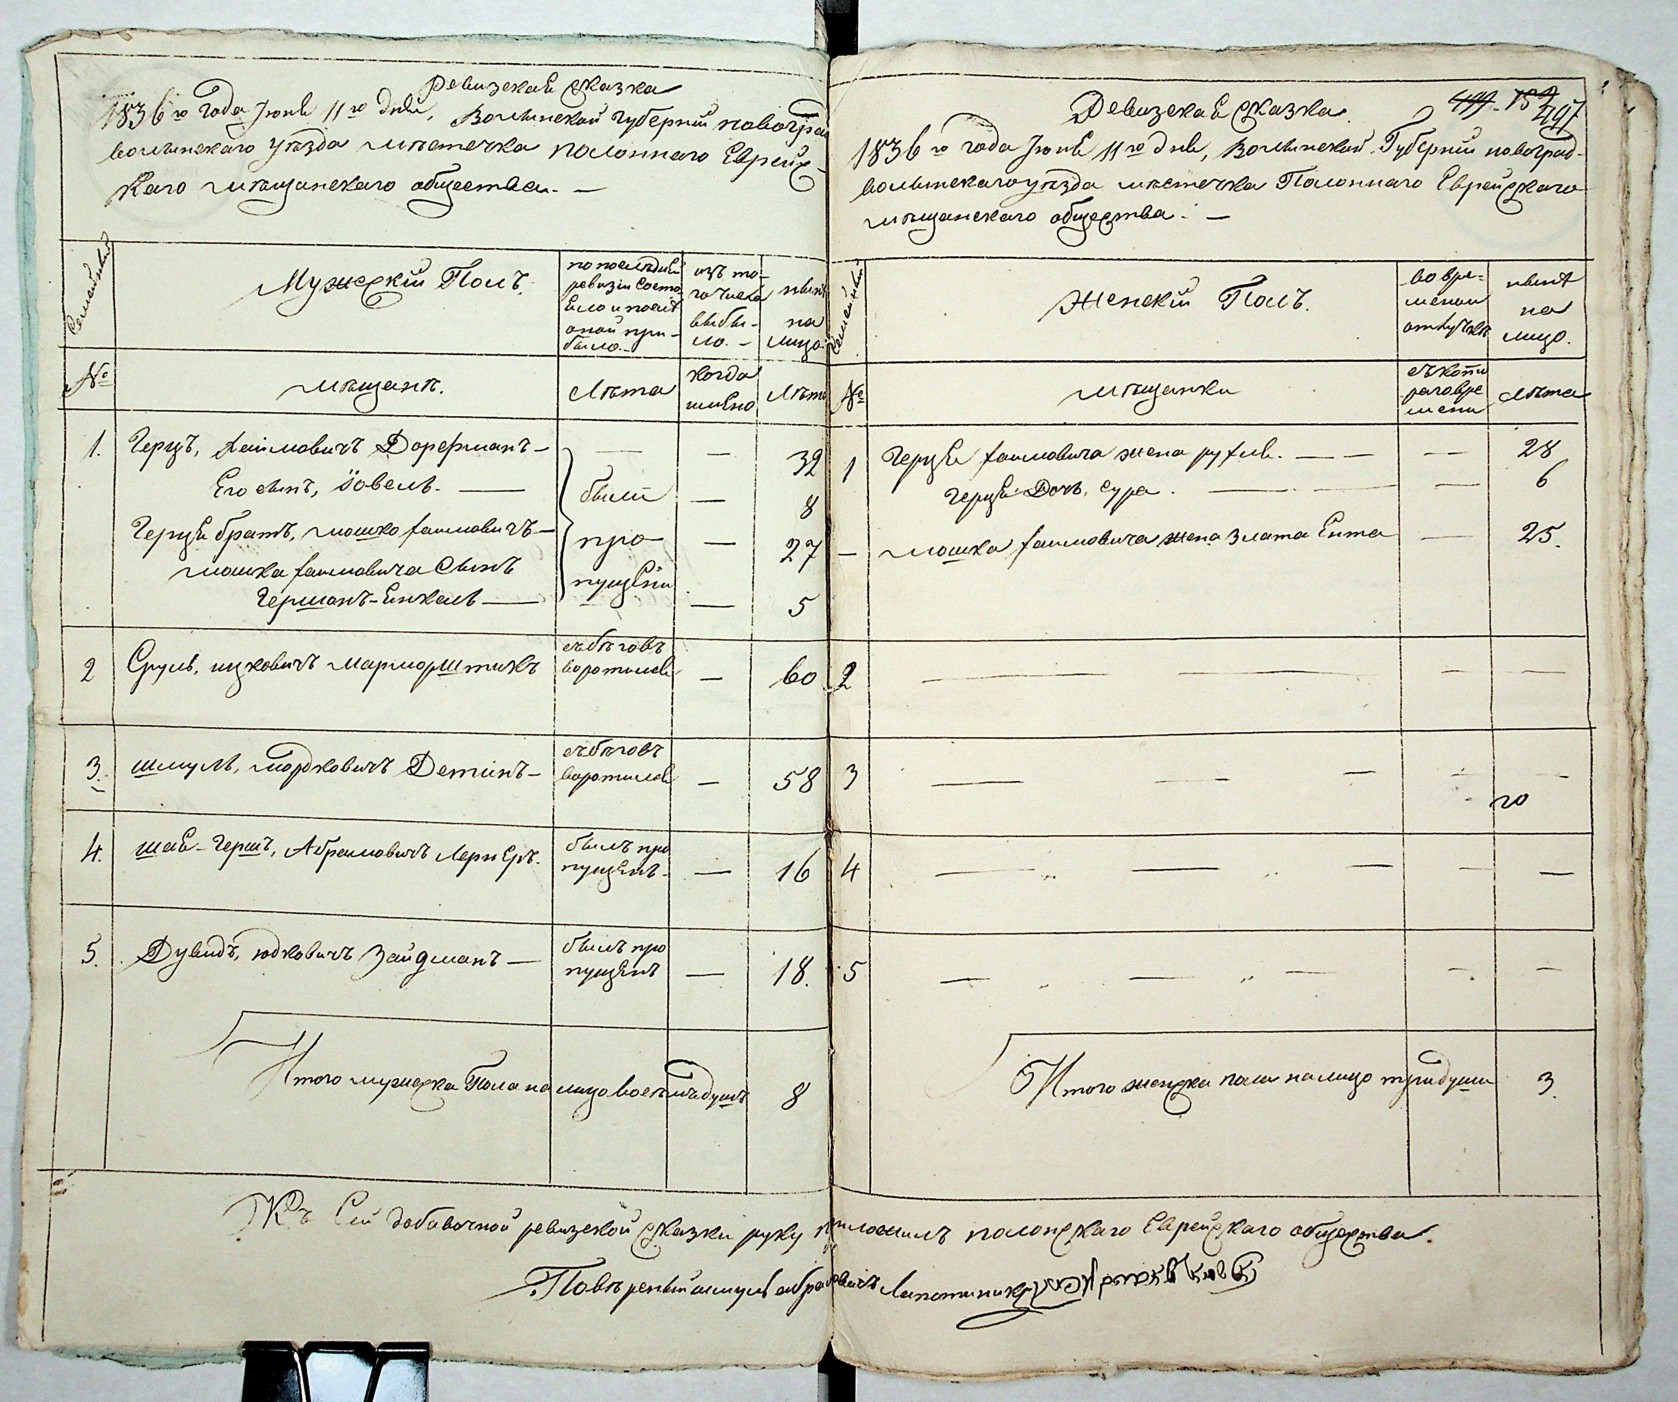 Ревизская сказка
1836го года Іюня 11го дня, Волынской губерніи новоград
волынскаго уѣзда мѣстечка полоннаго Еврейс-
каго мѣщанскаго общества. —
Семейный
Мужескій Полъ.
по послѣдней
ревизіи состо
яло и послѣ
оной при-
было. —
изъ то-
го числа
выбы-
ло. —
нынѣ
на
лицо.
№
мѣщанѣ.
Лѣта
когда
имено
Лѣта
1. Герцъ, Хаимовичъ Дорфманъ — — — 32
Его сынъ, іовель. — были — 8
Герца братъ, мошко хаимовичъ — про — 27
мошка хаимовича сынъ пущены
Гершанъ-Енкель — — 5
2 Сруль, ицковичъ Мармарштикъ
съ бѣговъ
воротился — 60
3. шмуль, мордковичъ Детинъ —
съ бѣговъ
воротился — 58
4. шае-гершъ, Абрамовичъ Лернеръ.
былъ про
пущенъ. — 16
5. Дувидъ, юдковичъ Зайдманъ —
былъ про
пущенъ — 18.
Итого мужеска Пола на лицо восемь душъ 8
499 152
497
Ревизская сказка.
1836го года Іюня 11го дня, Волынской Губерніи новоград-
волынскаго уѣзда мѣстечка Полоннаго Еврейскаго
мѣщанскаго общества. —
Семейный
Женскій Полъ.
во вре-
менной
отлучкѣ
нынѣ
на
лицо.
№
мѣщанки
съ кото
раго вре
мени
Лѣта
1 Герца хаимовича жена рухля. — — — 28
Герца Дочь, сура. — — — 6
— мошка хаимовича жена злата Ента — 25.
2 — — — —
3 — — — — —
4 — — — —
5 — — — — —
Итого женска пола на лицо три души 3.
Къ Сей добавочной ревизской сказки руку приложилъ полонскаго Еврейскаго общества.
Повѣренный шмуль абрамовичъ